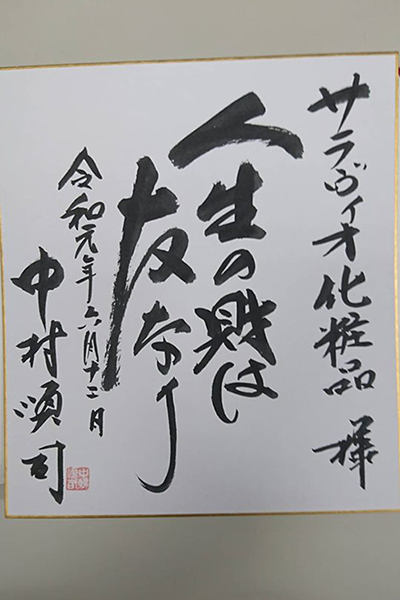 サラヴィオ化粧品 様
人生の財は
友なり
令和元年六月十二日
中村順司